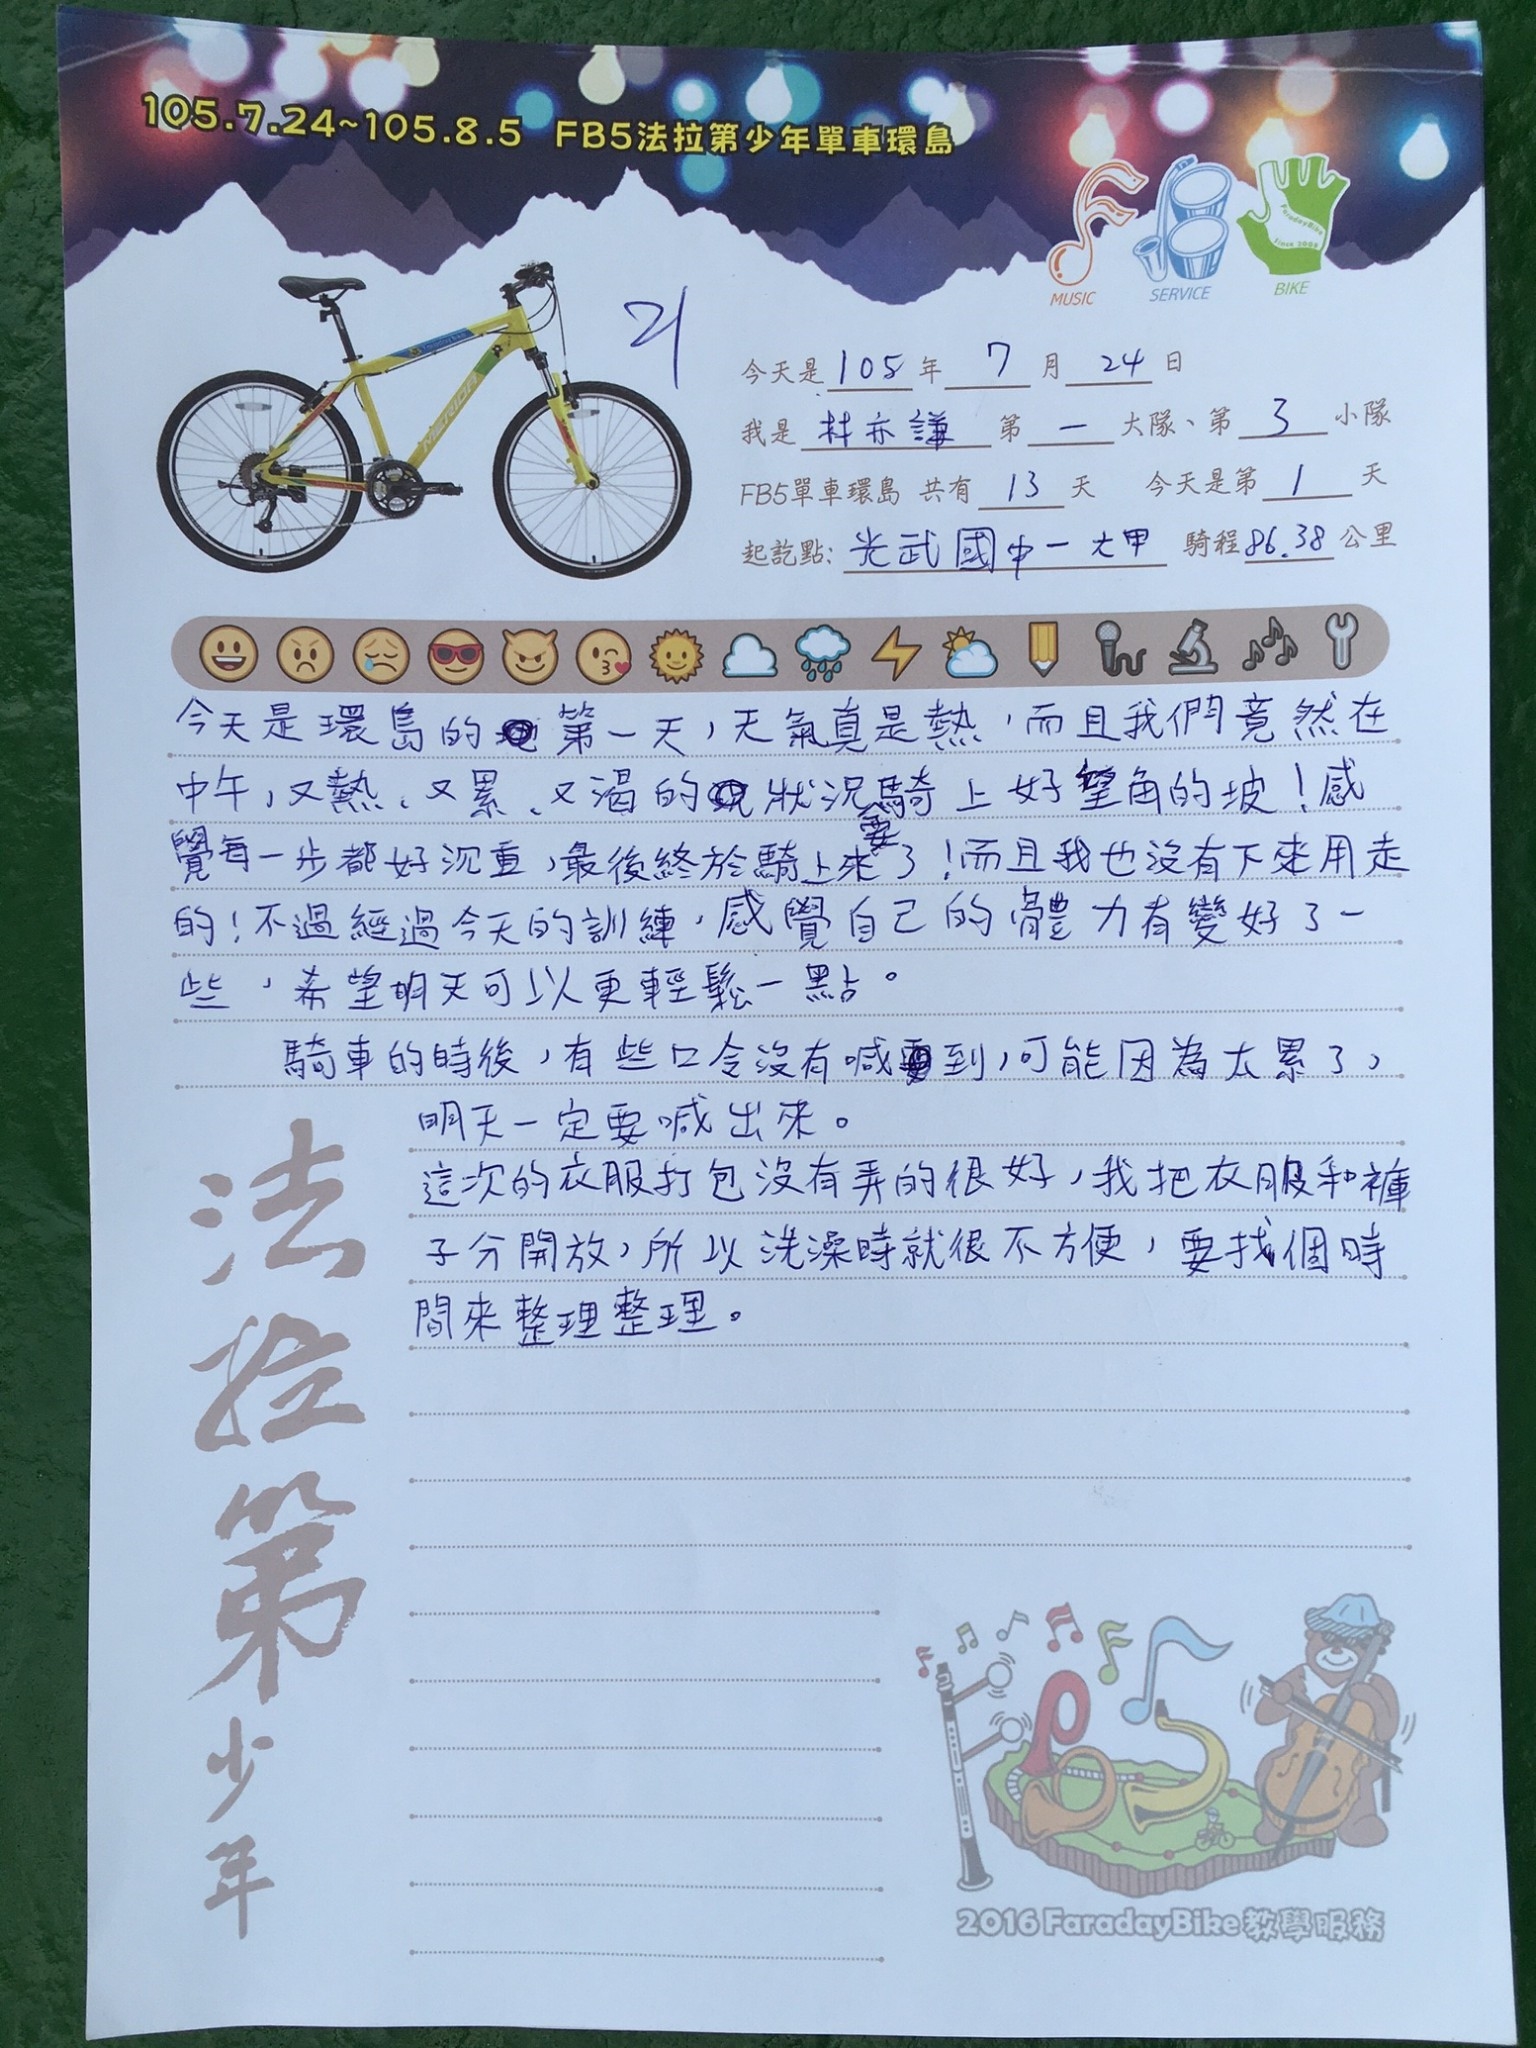 105.7.24~105.8.5 FB5法拉第少年單車環島
MUSIC SERVICE BIKE
FaradayBike
Since 2008
MERIDA
21
今天是 105 年 7 月 24 日
我是 林亦謙 第 一 大隊、第 3 小隊
FB5單車環島 共有 13 天 今天是第 1 天
起訖點: 光武國中一大甲 騎程 86.38 公里
今天是環島的第一天,天氣真是熱,而且我們竟然在
中午,又熱、又累、又渴的狀況騎上好望角的坡!感
覺每一步都好沉重,最後終於騎上來要了!而且我也沒有下來用走
的!不過經過今天的訓練,感覺自己的體力有變好了一
些,希望明天可以更輕鬆一點。
騎車的時後,有些口令沒有喊到,可能因為太累了,
明天一定要喊出來。
這次的衣服打包沒有弄的很好,我把衣服和褲
子分開放,所以洗澡時就很不方便,要找個時
間來整理整理。
法拉第少年
2016 FaradayBike教學服務